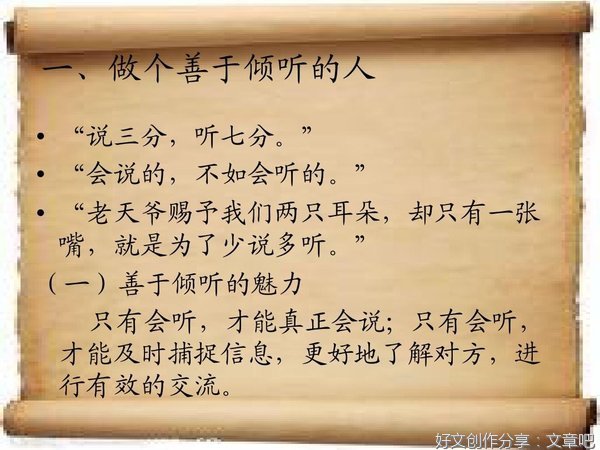 一、做个善于倾听的人
• “说三分，听七分。”
• “会说的，不如会听的。”
• “老天爷赐予我们两只耳朵，却只有一张
嘴，就是为了少说多听。”
（一）善于倾听的魅力
只有会听，才能真正会说；只有会听，
才能及时捕捉信息，更好地了解对方，进
行有效的交流。
好文创作分享：文章吧